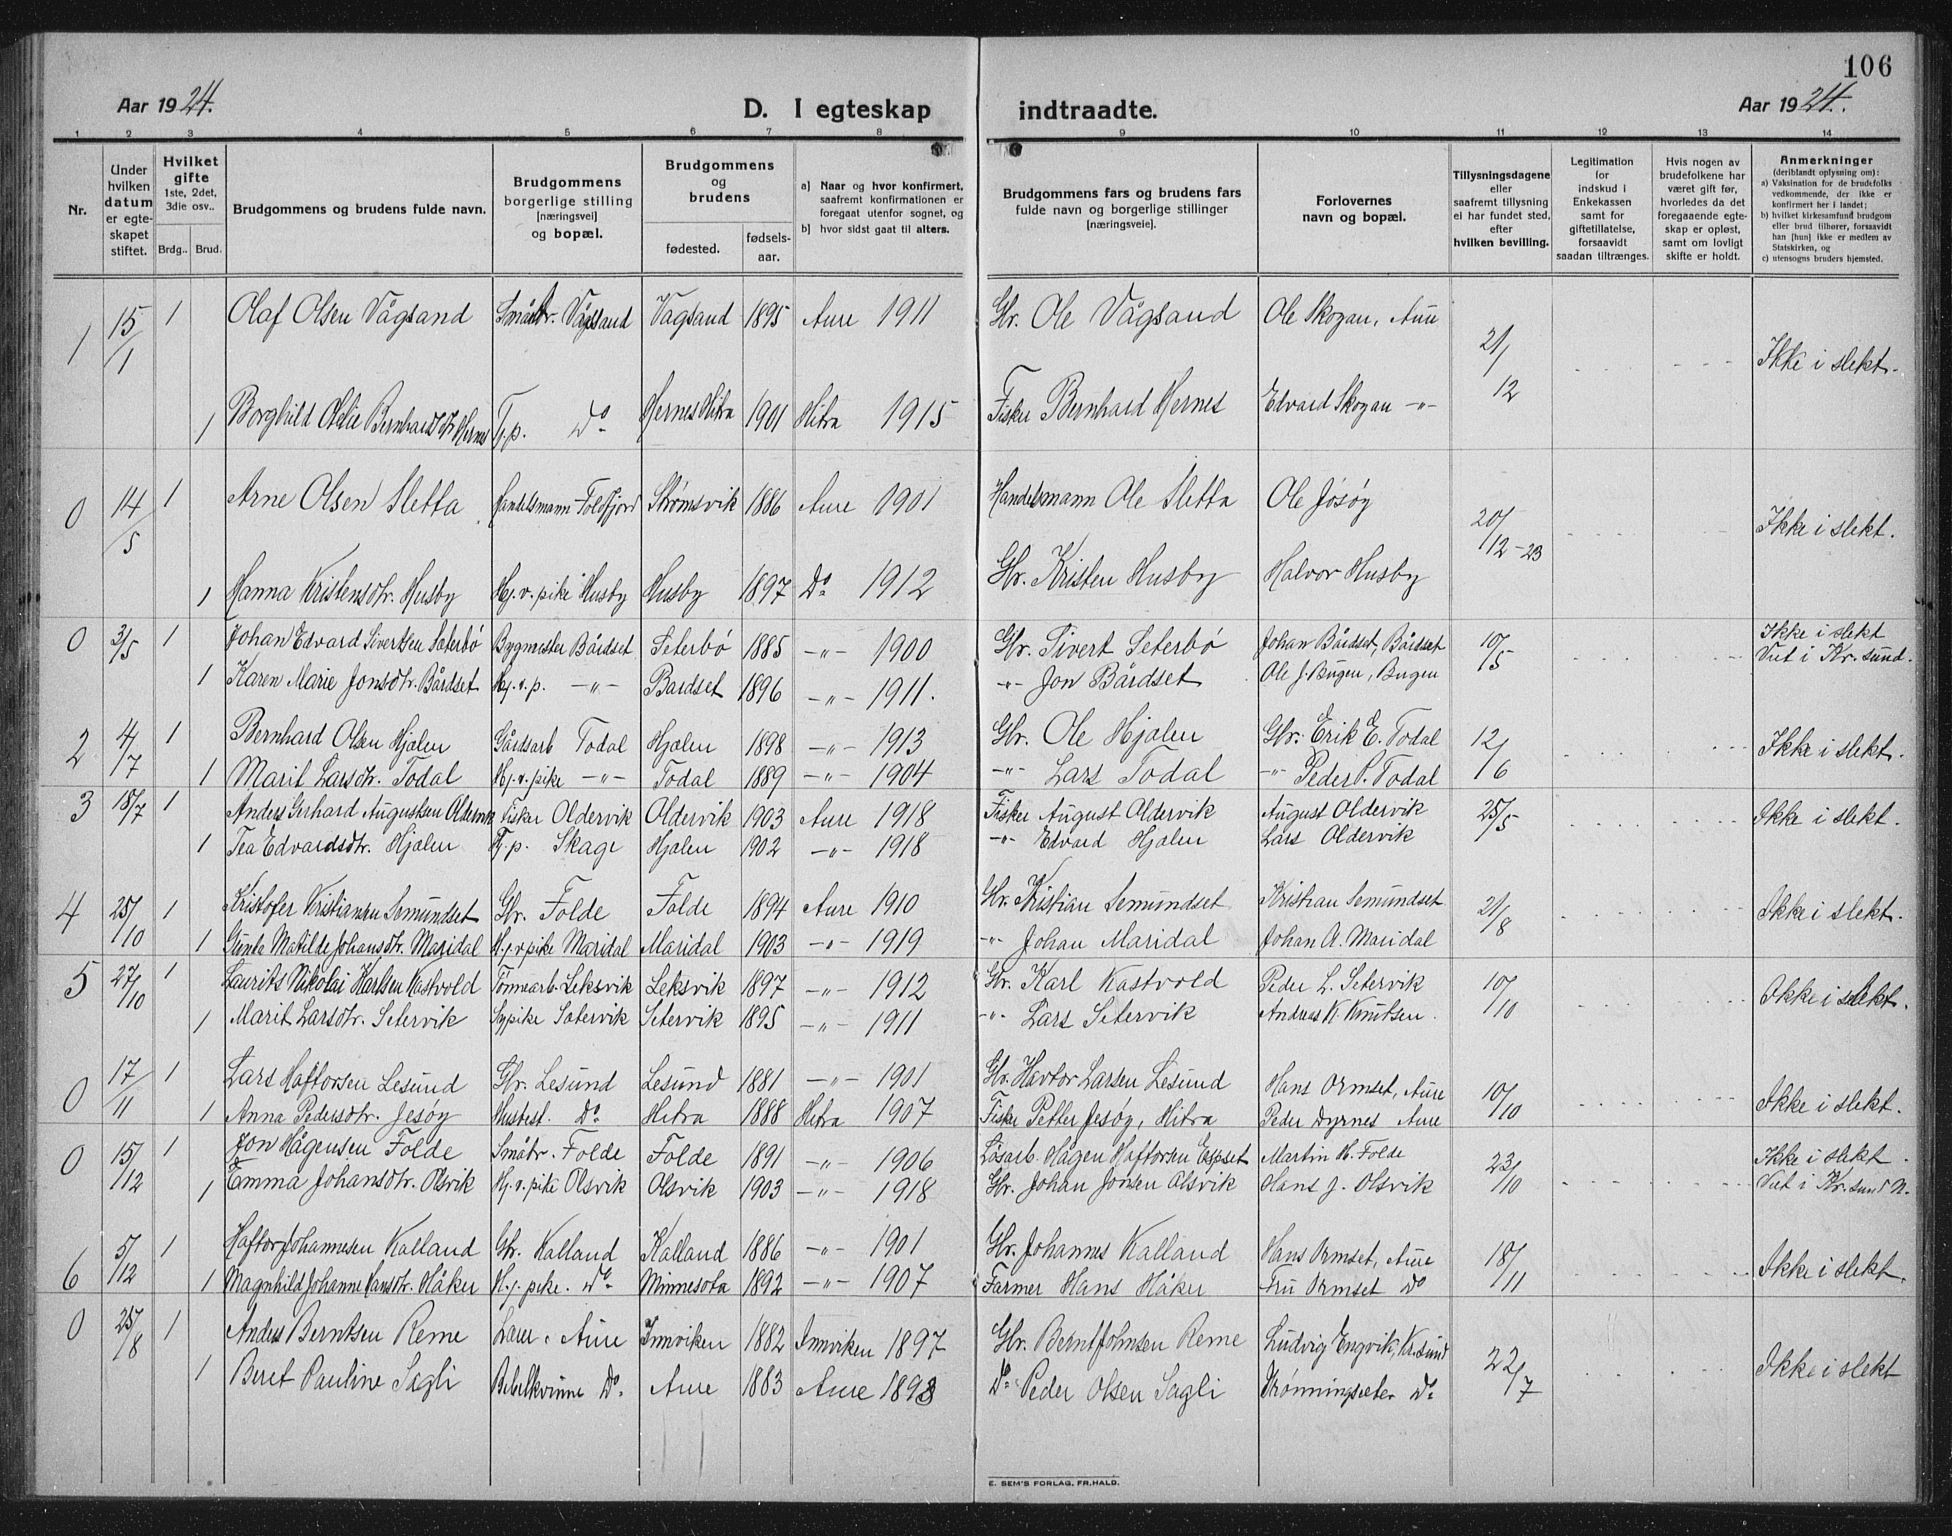 106
Aar 1924.
D. I egteskap indtraadte.
Aar 1924.
1 2 3 4 5 6 7 8 9 10 11 12 13 14
Nr.
Under hvilken datum er egteskapet stiftet.
Hvilket gifte 1ste, 2det, 3die osv..
Brdg.. Brud.
Brudgommens og brudens fulde navn.
Brudgommens borgerlige stilling [næringsvei] og bopæl.
Brudgommens og brudens
fødested. fødsels-aar.
a] Naar og hvor konfirmert, saafremt konfirmationen er foregaat utenfor sognet, og
b] hvor sidst gaat til alters.
Brudgommens fars og brudens fars fulde navn og borgerlige stillinger [næringsveie].
Forlovernes navn og bopæl.
Tillysningsdagene eller saafremt tillysning ei har fundet sted, efter hvilken bevilling.
Legitimation for indskud i Enkekassen samt for giftetillatelse, forsaavidt saadan tiltrænges.
Hvis nogen av brudefolkene har været gift før, hvorledes da det foregaaende egteskap er opløst, samt om lovligt skifte er holdt.
Anmerkninger (deriblandt oplysning om):
a) Vaksination for de brudefolks vedkommende, der ikke er konfirmert her i landet;
b) hvilket kirkesamfund brudgom eller brud tilhører, forsaavidt han [hun] ikke er medlem av Statskirken, og
c) utensogns bruders hjemsted.
1 15/1 1 Olaf Olsen Vågsand Småbr. Vågsand Vågsand 1895 Aure 1911 Gbr. Ole Vågsand Ole Skogan, Aure 21/12 Ikke i slekt.
1 Borghild Bernhardsdtr Hernes Tj.p. Do Hernes Hitra 1901 Hitra 1915 Fisker Bernhard Hernes Edvard Skogan -"-
0 14/5 1 Arne Olsen Sletta Handelsmann Foldfjord Strømsvik 1886 Aure 1901 Handelsmann Ole Sletta Ole Jøsøy 20/12-23 Ikke i slekt.
1 Hanna Kristensdtr. Husby Hj.v.pike Husby Husby 1897 Do 1912 Gbr. Kristen Husby Halvor Husby
0 3/5 1 Johan Edvard Sivertsen Sæterbø Bygmester Bårdset Seterbø 1885 -"- 1900 Gbr. Sivert Seterbø Johan Bårdset, Bårdset 10/5 Ikke i slekt Viet i Kr.sund.
1 Karen Marie Jonsdtr. Bårdset Hj.v.p. -"- Bardset 1896 -"- 1911. -"- Jon Bårdset Ole J. Bugen, Bugen
2 4/7 1 Bernhard Olsen Hjølen Gårdsarb Todal Hjølen 1898 -"- 1913 Gbr. Ole Hjølen Gbr. Erik E. Todal 12/6 Ikke i slekt.
1 Marit Larsdtr. Todal Hj.v.pike -"- Todal 1889 -"- 1904 -"- Lars Todal -"- Peder P. Todal
3 18/7 1 Anders Gerhard Augustsen Oldervik Fisker Oldervik Oldervik 1903 Aure 1918 Fisker August Oldervik August Oldervik 25/5 Ikke i slekt.
1 Tea Edvardsdtr. Hjølen Tj.p. Skage Hjølen 1902 -"- 1918 -"- Edvard Hjølen Lars Oldervik
4 25/10 1 Kristofer Kristiansen Semundset Gbr. Folde Folde 1894 Aure 1910 Gbr. Kristian Semundset Kristian Semundset 21/8 Ikke i slekt.
1 Matilde Johansdtr. Maridal Hj.v.pike Maridal Maridal 1903 -"- 1919 -"- Johan Maridal Johan A. Maridal
5 27/10 1 Laurits Nikolai Karlsen Kastvold Tømmarb. Leksvik Leksvik 1897 -"- 1912 Gbr. Karl Kastvold Peder L. Setervik 10/10 Ikke i slekt.
1 Marit Larsdtr. Setervik Sypike Setervik Setervik 1895 -"- 1911 -"- Lars Setervik Andreas K. Knutsen.
0 17/11 1 Lars Haftorsen Lesund Gbr. Lesund Lesund 1881 -"- 1901 Gbr. Havtor Larsen Lesund Hans Ormset, Aure 10/10 Ikke i slekt.
1 Anna Pedersdtr. Jesøy Husbest. Do Hitra 1888 Hitra 1907 Fisker Petter Jesøy, Hitra Peder Dyrnes Aure
0 15/12 1 Jon Hågensen Folde Småbr. Folde Folde 1891 -"- 1906 Løsarb. Hågen Haftorsen Espset Martin H. Folde 23/10 Ikke i slekt. Viet i Kr.sund N.
1 Emma Johansdtr. Olsvik Hj.v.pike Olsvik Olsvik 1903 -"- 1918 Gbr. Johan Jonsen Olsvik Hans J. Olsvik
6 5/12 1 Haftor Johannesen Kalland Gbr. Kalland Kalland 1886 -"- 1901 Gbr. Johannes Kalland Hans Ormset, Aure 18/11 Ikke i slekt.
1 Magnhild Johanne Hansdtr. Håker H.j.pike. Do Minnesota 1892 -"- 1907 Farmer Hans Håker Fru Ormset Do
0 25/8 1 Anders Berntsen Reme Lærer, Aure Innviken 1882 Innviken 1897 Gbr. Bernt Johnsen Reme Ludvig Engvik, Kr.sund 22/7 Ikke i slekt
1 Beret Pauline Sagli Bibelkvinne Do. Aure 1883 Aure 1898 Do Peder Olsen Sagli Do
E. SEM'S FORLAG, FR.HALD.